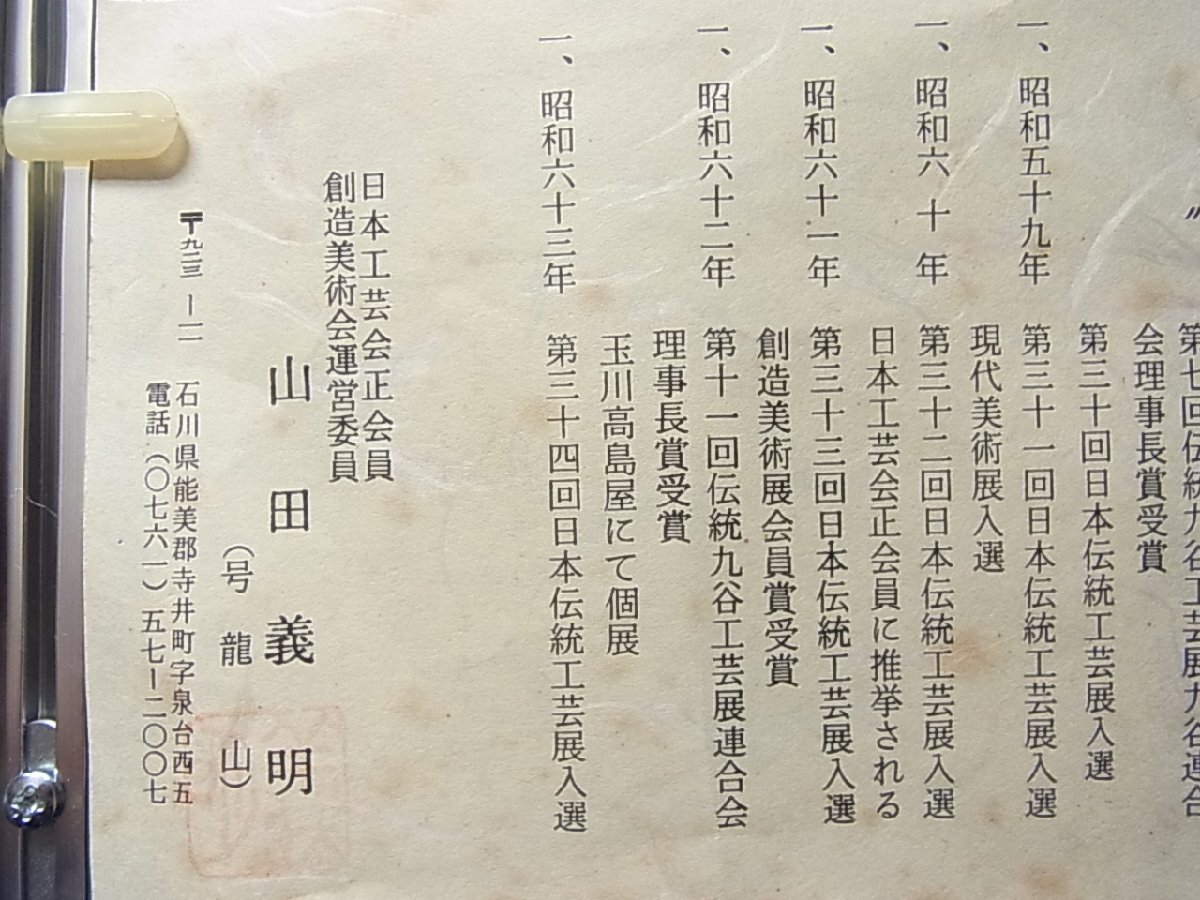 〃
第七回伝統九谷工芸展九谷連合
会理事長賞受賞
第三十回日本伝統工芸展入選
一、昭和五十九年 第三十一回日本伝統工芸展入選
現代美術展入選
一、昭和六十年 第三十二回日本伝統工芸展入選
日本工芸会正会員に推挙される
一、昭和六十一年 第三十三回日本伝統工芸展入選
創造美術展会員賞受賞
一、昭和六十二年 第十一回伝統九谷工芸展連合会
理事長賞受賞
玉川高島屋にて個展
一、昭和六十三年 第三十四回日本伝統工芸展入選
日本工芸会正会員
創造美術会運営委員
山田義明
（号 龍山）
〒九二三―一一 石川県能美郡寺井町字泉台西五
電話（〇七六一）五七―二〇〇七